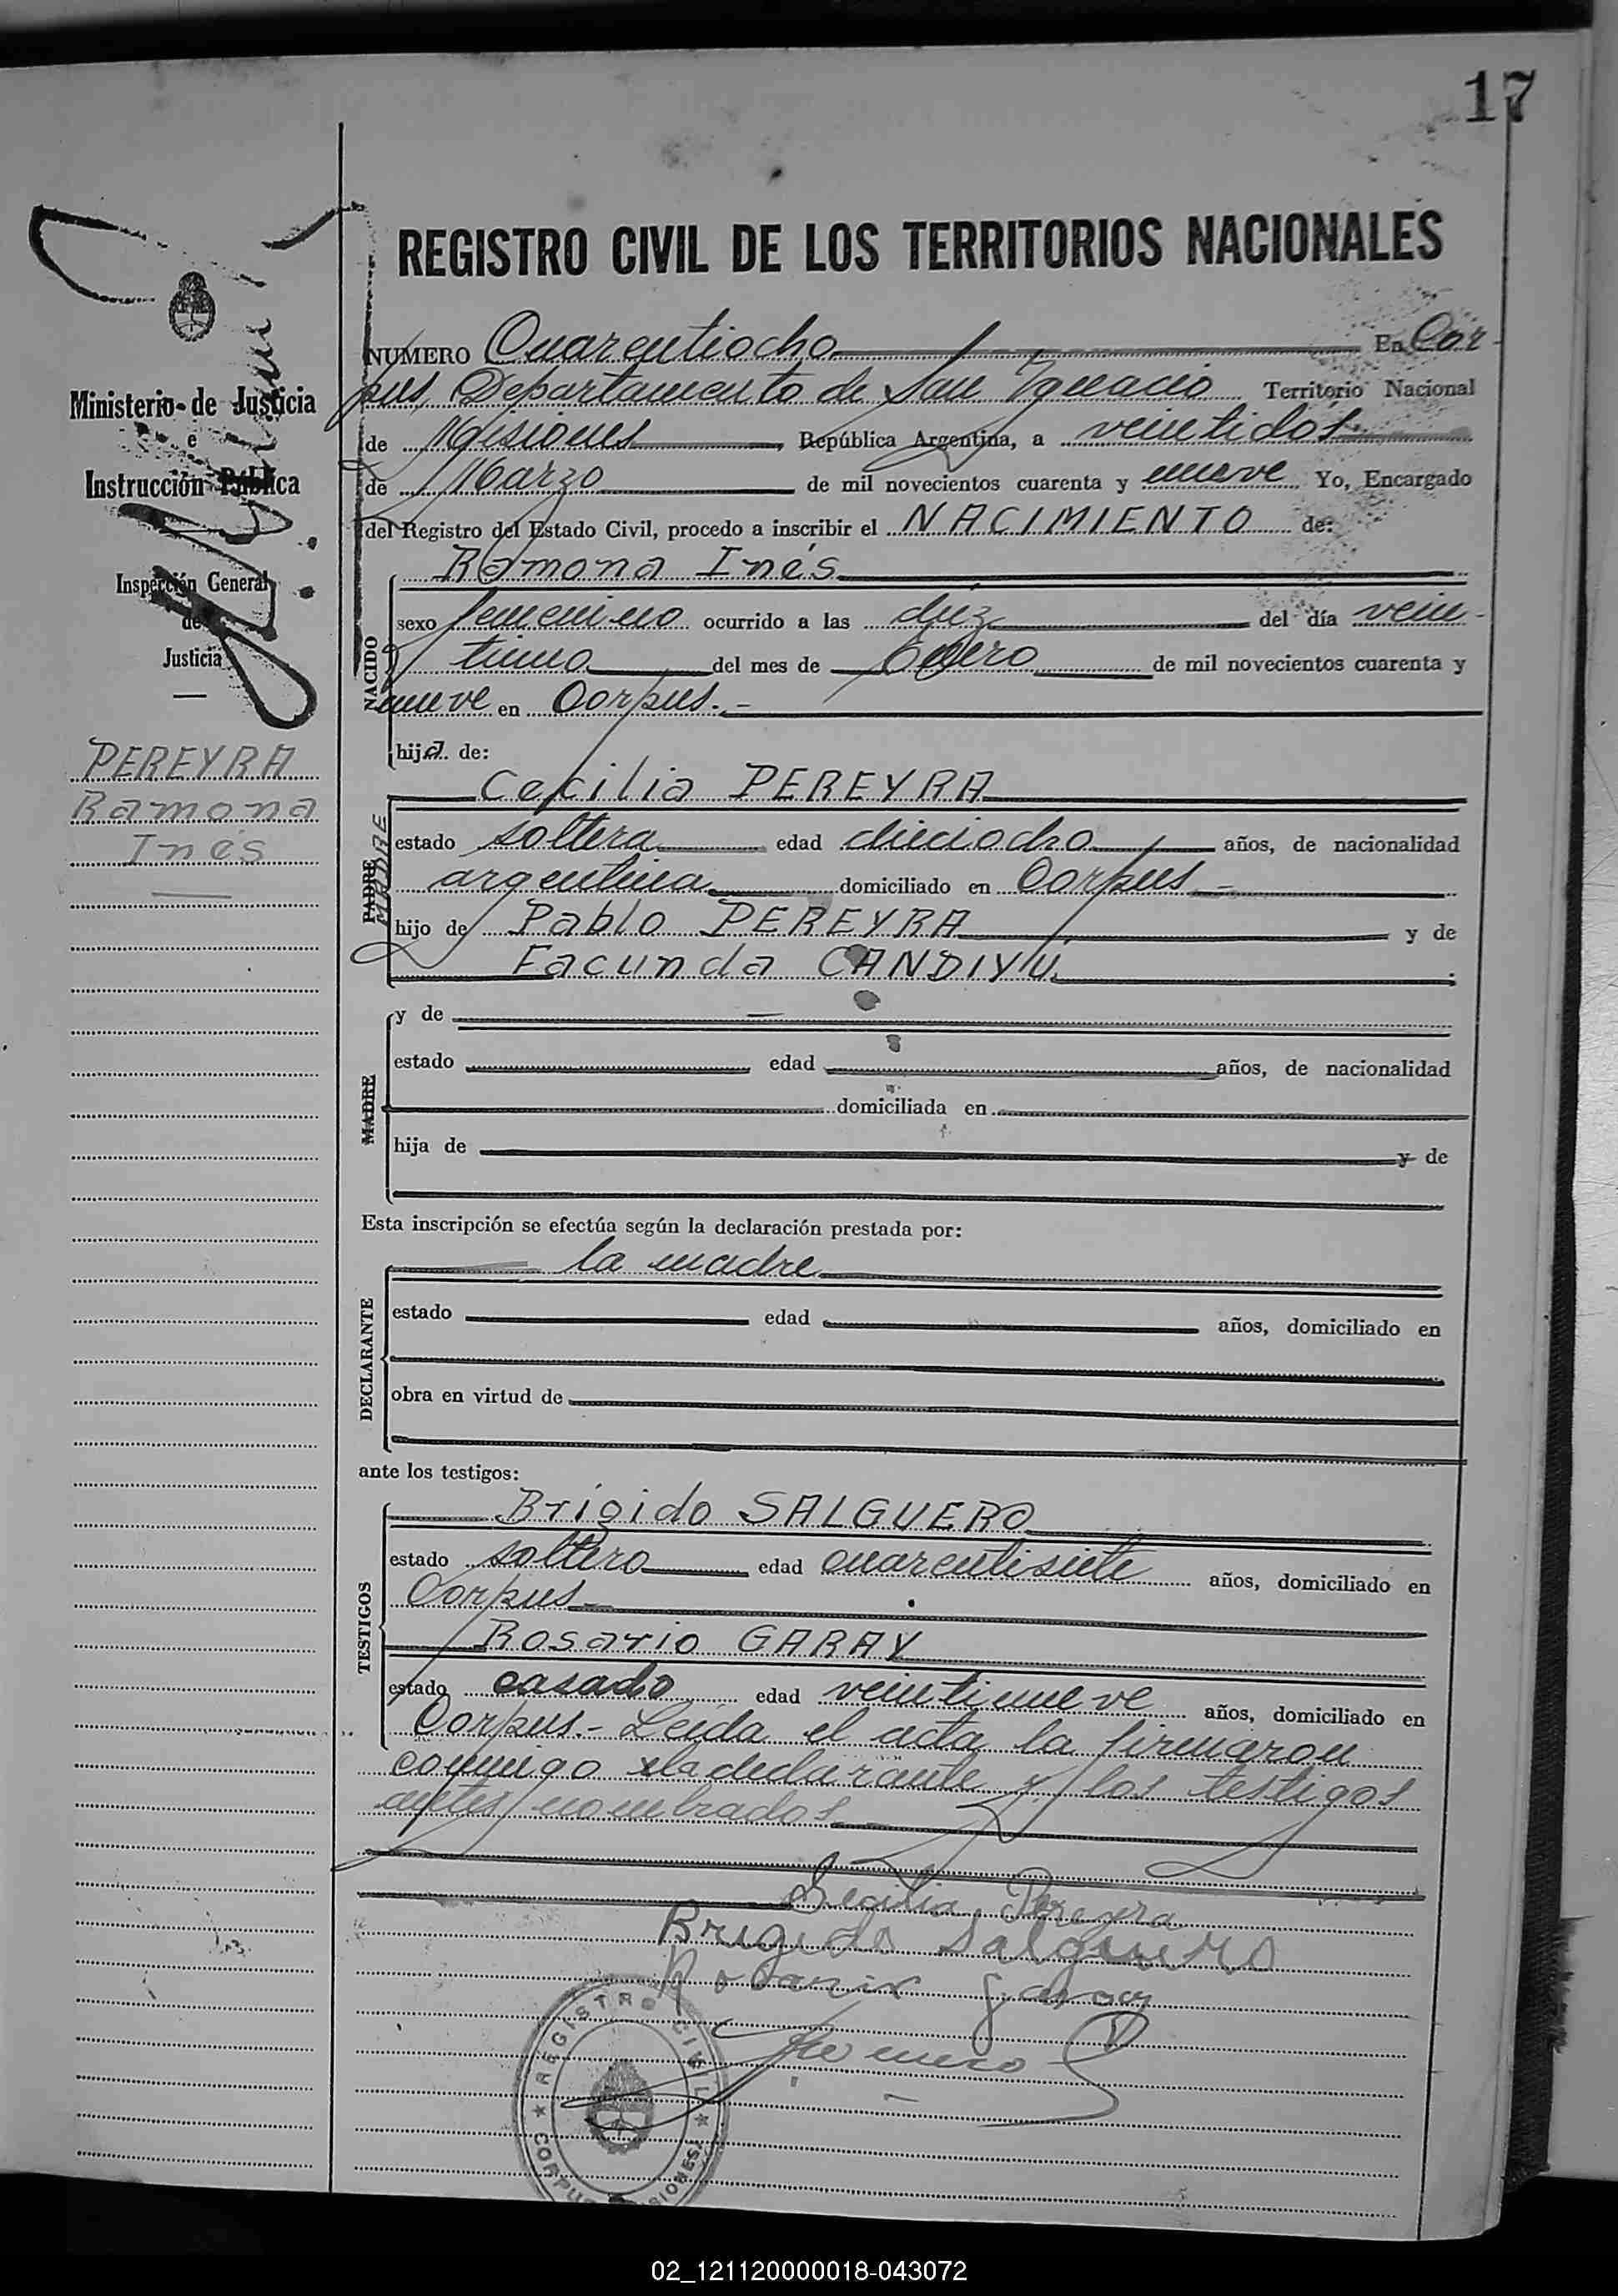 17
REGISTRO CIVIL DE LOS TERRITORIOS NACIONALES
Ministerio de Justicia
e
Instrucción Pública
Inspección General
de
Justicia
PEREYRA
Ramona
Inés
NUMERO Cuarentiocho En Cor-
pus, Departamento de San Ignacio Territorio Nacional
de Misiones, República Argentina, a veintidós
de Marzo de mil novecientos cuarenta y nueve Yo, Encargado
del Registro del Estado Civil, procedo a inscribir el NACIMIENTO de:
NACIDO
Ramona Inés
sexo femenino ocurrido a las diez del día vein-
tiuno del mes de Enero de mil novecientos cuarenta y
nueve en Corpus.-
hija de:
PADRE
MADRE
Cecilia PEREYRA
estado soltera edad dieciocho años, de nacionalidad
argentina domiciliado en Corpus
hijo de Pablo PEREYRA y de
Facunda CANDIYÚ.
MADRE
y de
estado edad años, de nacionalidad
domiciliada en
hija de y de
Esta inscripción se efectúa según la declaración prestada por:
DECLARANTE
la madre
estado edad años, domiciliado en
obra en virtud de
ante los testigos:
TESTIGOS
Brígido SALGUERO
estado soltero edad cuarentisiete años, domiciliado en
Corpus
Rosario GARAY
estado casado edad veintinueve años, domiciliado en
Corpus.- Leída el acta la firmaron
conmigo la declarante y los testigos
antes nombrados
Secilia Pereyra
Brigido Salguero
Garay
REGISTRO CIVIL
CORPUS MISIONES
02_121120000018-043072